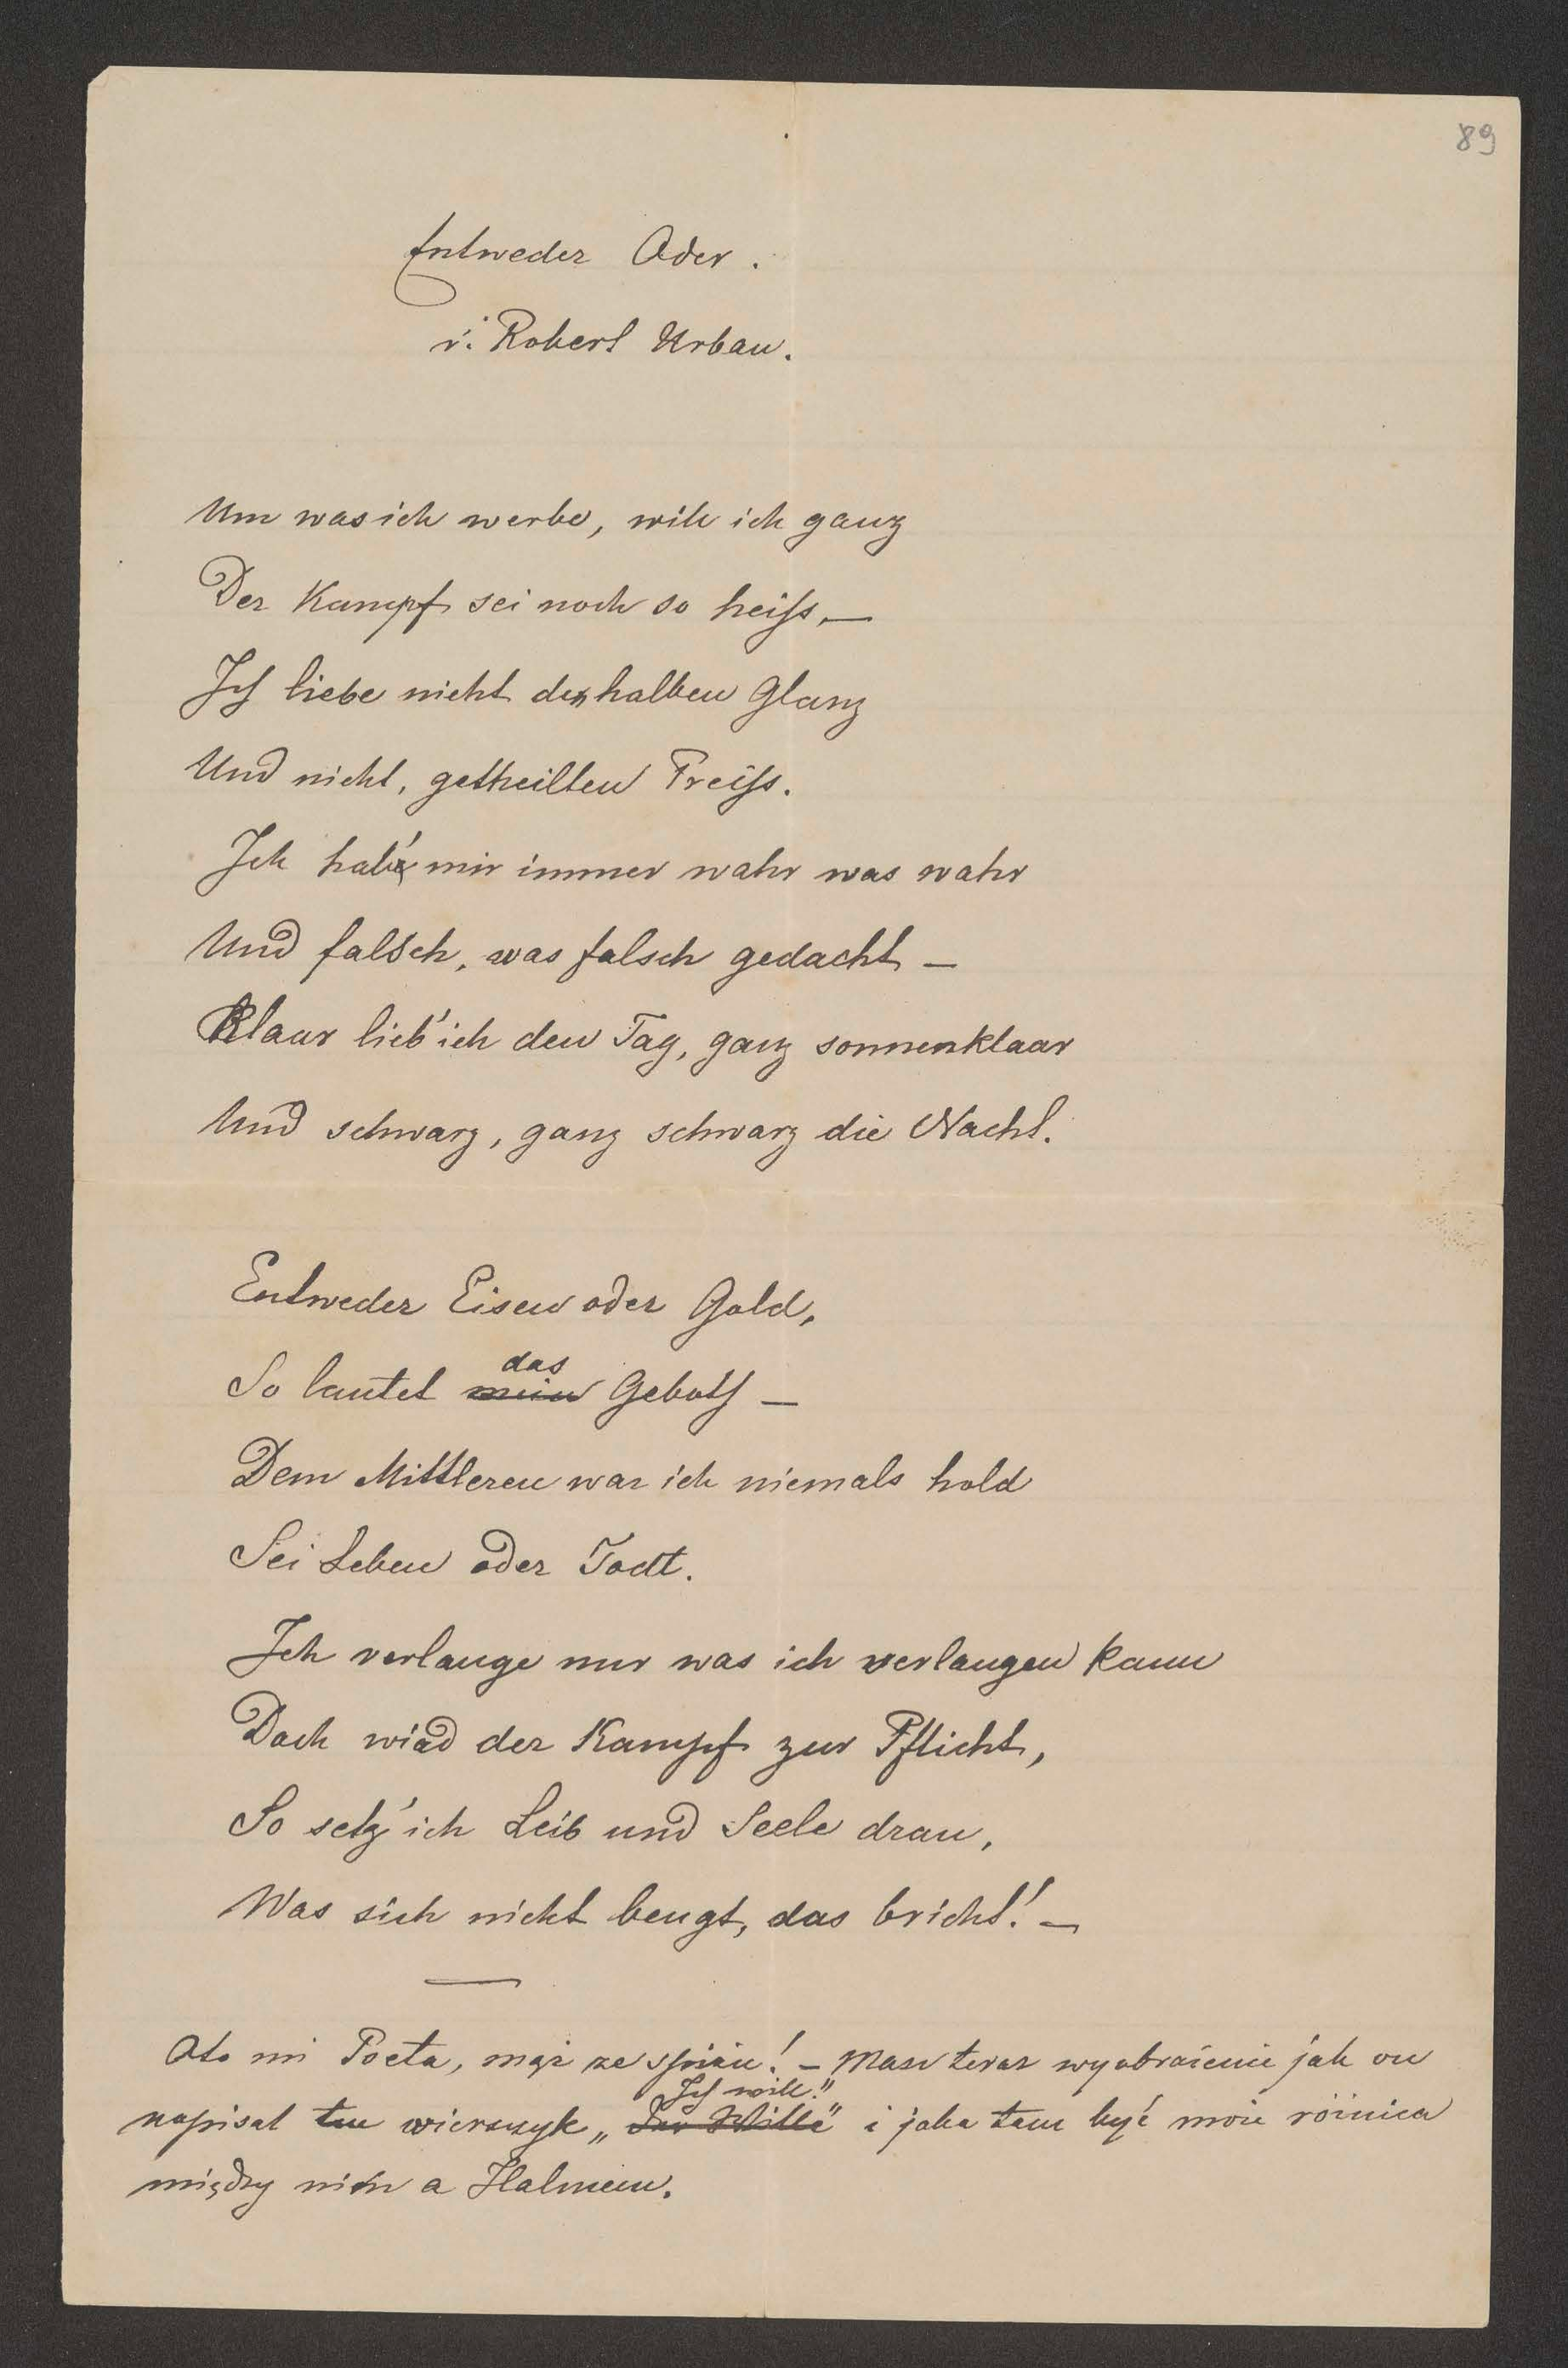 89
Entweder Oder.
v. Robert Urban.
Um was ich werbe, will ich ganz
Der Kampf sei noch so heiss, —
Ich liebe nicht den halben Glanz
Und nicht, getheilten Preiss.
Ich hab' mir immer wahr was wahr
Und falsch, was falsch gedacht —
Klaar lieb' ich den Tag, ganz sonnenklaar
Und schwarz, ganz schwarz die Nacht.
Entweder Eisen oder Gold,
das
So lautet mein Geboth —
Dem Mittleren war ich niemals hold
Sei Leben oder Todt.
Ich verlange nur was ich verlangen kann
Doch wird der Kampf zur Pflicht,
So setz' ich Leib und Seele dran,
Was sich nicht beugt, das bricht! —
Oto mi Poeta, mąż ze spiżu! — Masz teraz wyobrażenie jak on
Ich will."
napisał ten wierszyk „Der Wille" i jaka tam być może różnica
między nim a Halmem.